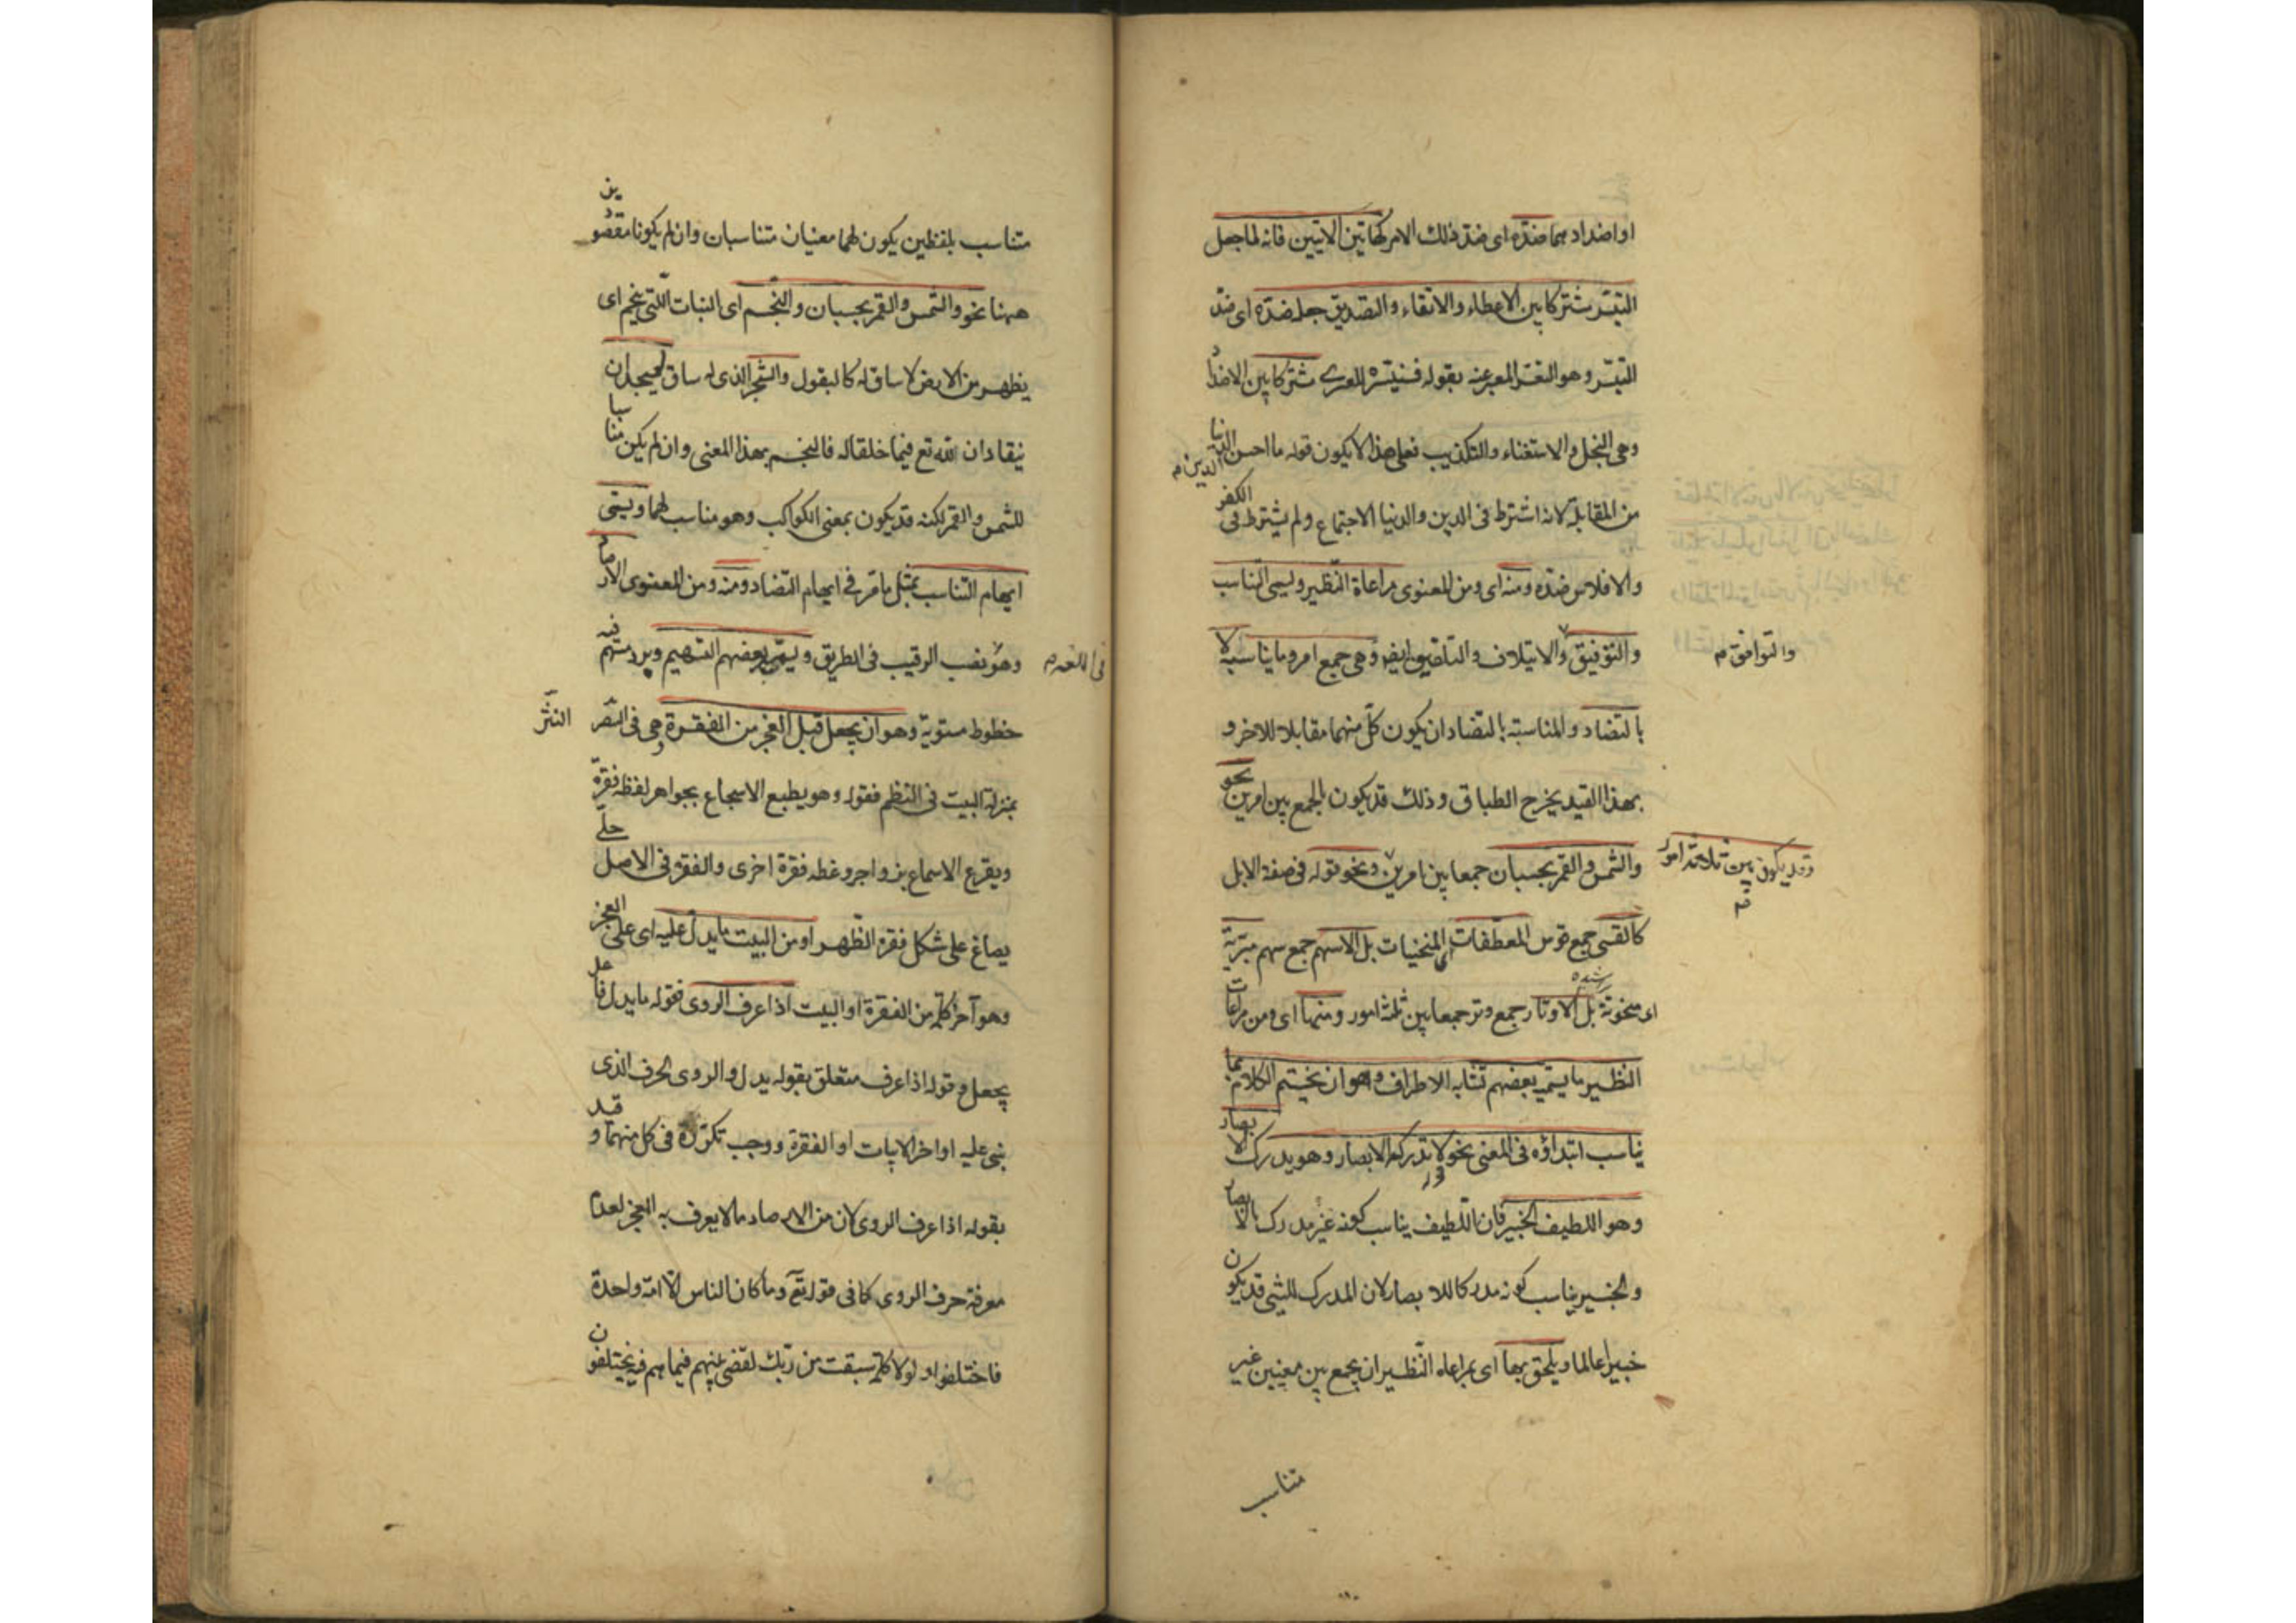 او اضداد هما ضدّه اى ضدّ ذلك الامر كهاتين الايتين فانه لما جعل
التيسّر مشتركا بين الاعطاء والاتقاء والتصديق جعل ضدّه اى ضدّ
التيسّر وهو التعسّر المعبر عنه بقوله فسنيسّره للعسرى مشتركا بين الاضداد
وهى البخل والاستغناء والتكذيب فعلى هذا لا يكون قوله ما احسن الدين والدنيا
من المقابلة لانه اشترط فى الدين والدنيا الاجتماع ولم يشترط فى الكفر
والافلاس ضدّه ومنه اى ومن المعنوى مراعاة النّظير ويسمى التناسب
والتوفيق والايتلاف والتلفيق ايضا وهى جمع امر وما يناسبه لا
والتوافق م
بالتضاد والمناسبة بالتضاد ان يكون كلّ منهما مقابلا للاخر و
بهذا القيد يخرج الطباق وذلك قد يكون بالجمع بين امرين نحو
والشمس والقمر بحسبان جمعا بين امرين ونحو قوله فى صفة الابل
وقد يكون بين ثلاثة امور م
كالقسى جمع قوس المعطّفات اى المنحنيات بل الاسهم جمع سهم مبريّة
اى منحوتة بل الاوتار جمع وتر جمعا بين ثلثة امور ومنها اى ومن مراعات
النظير ما يسمّيه بعضهم تشابه الاطراف وهو ان يختم الكلام بما
يناسب ابتداؤه فى المعنى نحو لا تدركه الابصار وهو يدرك الابصار
وهو اللطيف الخبير فان اللّطيف يناسب كونه غير مدرك بالابصار
والخبير يناسب كونه مدركا للابصار لان المدرك للشىء قد يكون
خبيرا عالما ويلحق بها اى بمراعاه النّظير ان يجمع بين معنيين غير
متناسب
متناسب بلفظين يكون لهما معنيان متناسبان وان لم يكونا مقصودين
ههنا نحو والشمس والقمر بحسبان والنّجم اى النبات الّتى ينجم اى
يظهر من الارض لا ساق له كالبقول والشّجر الذى له ساق يسجدان
ينقادان لله تع فيما خلقا له فالنجم بهذا المعنى وان لم يكن مناسبا
للشمس والقمر لكنه قد يكون بمعنى الكواكب وهو مناسب لهما ويسمّى
ايهام التناسب بمثل ما مرّ فى ايهام التضاد ومنه ومن المعنوى الارصاد
وهو نصب الرقيب فى الطريق ويسمّيه بعضهم التسهيم وبرد مسهّم
فى اللغة م
خطوط مستوية وهو ان يجعل قبل العجز من الفقرة وهى فى النثر
النثر
بمنزلة البيت فى النظم فقوله وهو يطبع الاسجاع بجواهر لفظه فقرة
ويقرع الاسماع بزواجر وعظه فقرة اخرى والفقرة فى الاصل حلّى
يصاغ على شكل فقرة الظّهر او من البيت ما يدلّ عليه اى على العجز
وهو آخر كلمة من الفقرة او البيت اذا عرف الروى فقوله ما يدل فاعل
يجعل وقوله اذا عرف متعلق بقوله يدل والروى الحرف الذى
بنى عليه اواخر الابيات او الفقرة ووجب تكرّره فى كل منهما وقيد
بقوله اذا عرف الروى لان من الارصاد ما لا يعرف به العجز لعدم
معرفة حرف الروى كما فى قوله تع وما كان الناس الّا امّة واحدة
فاختلفوا ولولا كلمة سبقت من ربّك لقضى بينهم فيما هم فيه يختلفون